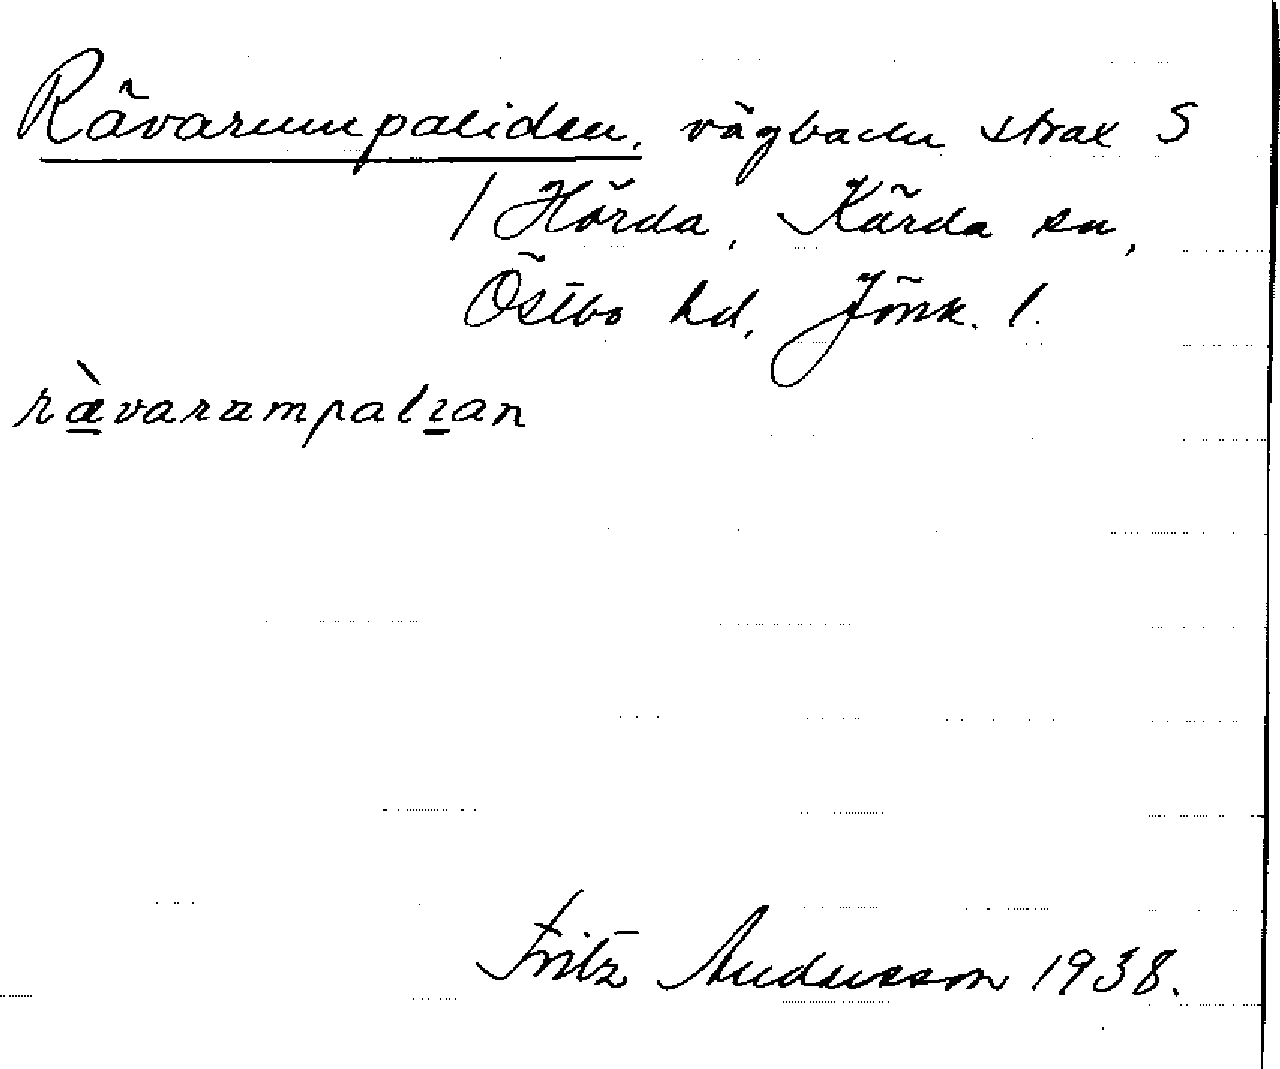 Rävarumpaliden, vägbacke strax S
/ Hörda, Kärda sn,
Östbo hd, Jönk. l.
rävarampalıan
Fritz Andersson 1938.